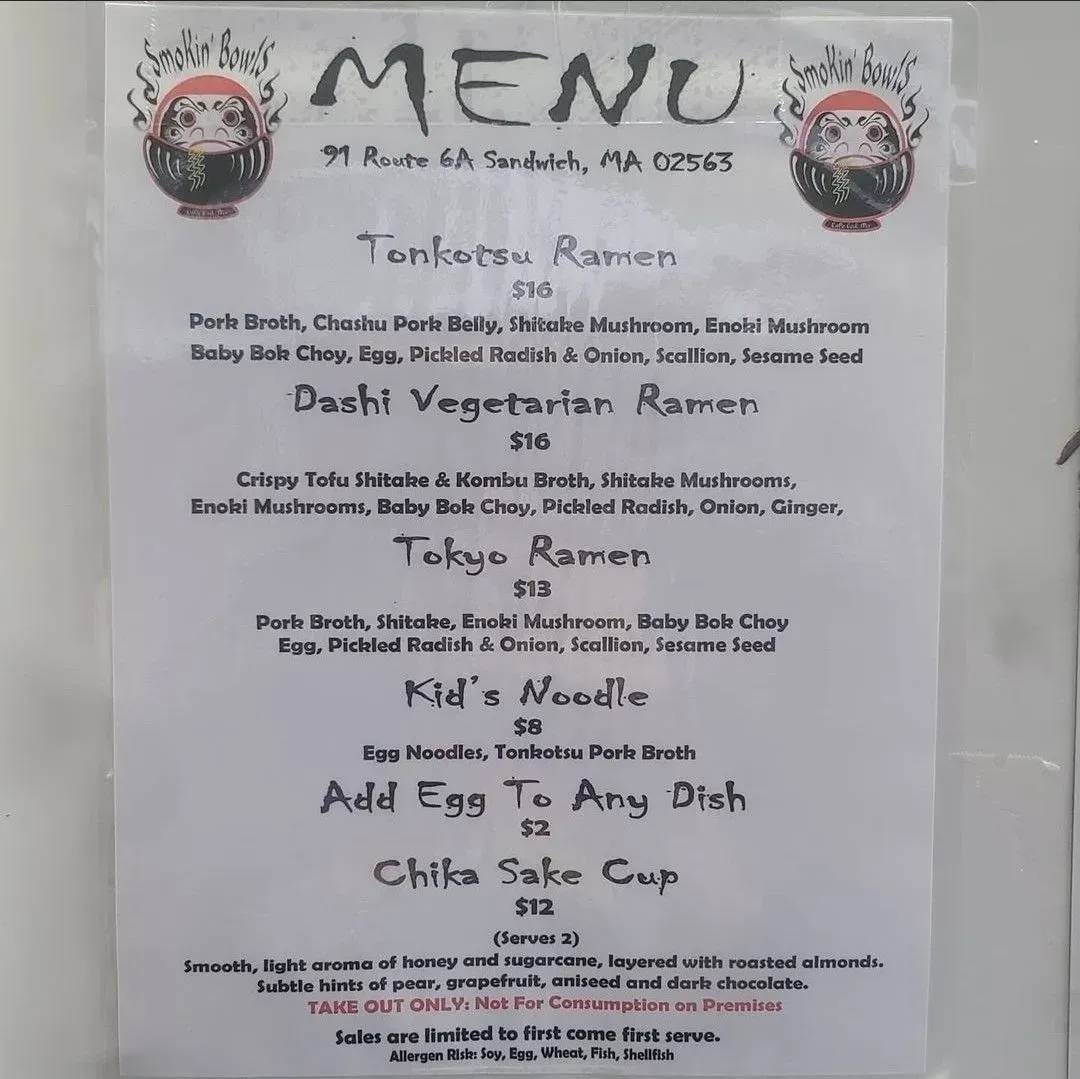 Smokin' Bowls
MENU
Smokin' Bowls
91 Route 6A Sandwich, MA 02563
Cape Cod, MA
Cape Cod, MA
Tonkotsu Ramen
$16
Pork Broth, Chashu Pork Belly, Shitake Mushroom, Enoki Mushroom
Baby Bok Choy, Egg, Pickled Radish & Onion, Scallion, Sesame Seed
Dashi Vegetarian Ramen
$16
Crispy Tofu Shitake & Kombu Broth, Shitake Mushrooms,
Enoki Mushrooms, Baby Bok Choy, Pickled Radish, Onion, Ginger,
Tokyo Ramen
$13
Pork Broth, Shitake, Enoki Mushroom, Baby Bok Choy
Egg, Pickled Radish & Onion, Scallion, Sesame Seed
Kid's Noodle
$8
Egg Noodles, Tonkotsu Pork Broth
Add Egg To Any Dish
$2
Chika Sake Cup
$12
(Serves 2)
Smooth, light aroma of honey and sugarcane, layered with roasted almonds.
Subtle hints of pear, grapefruit, aniseed and dark chocolate.
TAKE OUT ONLY: Not For Consumption on Premises
Sales are limited to first come first serve.
Allergen Risk: Soy, Egg, Wheat, Fish, Shellfish